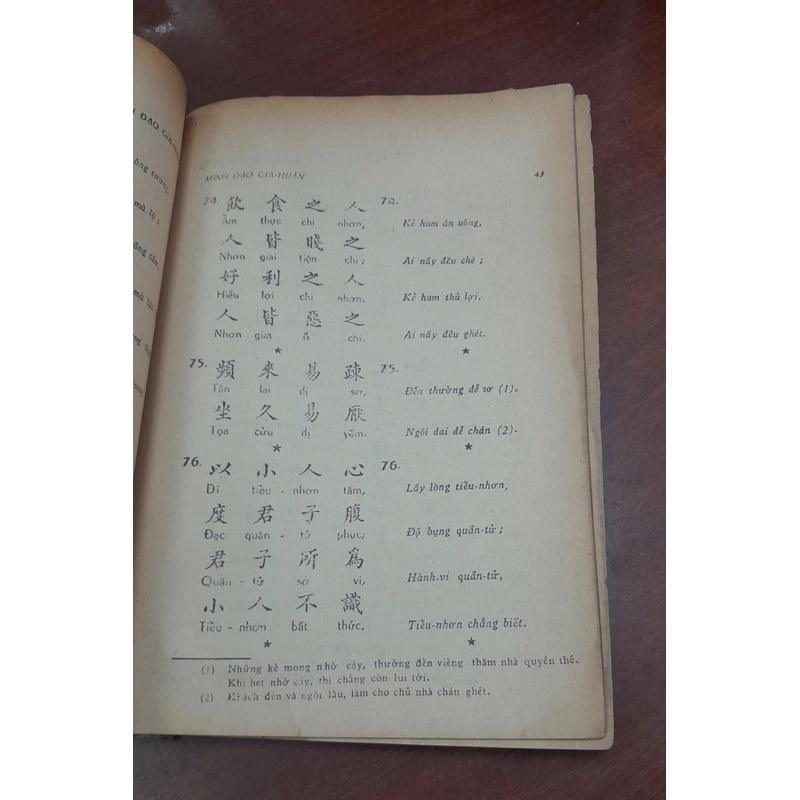 ĐẠO GIA-HU
ông tường,
mà lộ ;
ông sầm,
mà lậu
ng
ong
MINH ĐẠO GIA-HUẤN 43
74. 飲 食 之 人 74.
Ẩm thực chi nhơn, Kẻ ham ăn uống,
人 皆 賤 之
Nhơn giai tiện chi ; Ai nấy đều chê ;
好 利 之 人
Hiếu lợi chi nhơn. Kẻ ham thủ lợi,
人 皆 惡 之
Nhơn giai ố chi. Ai nấy đều ghét.
★ ★
75. 頻 來 易 疎 75.
Tần lai dị sơ, Đến thường dễ sơ (1).
坐 久 易 厭
Tọa cửu dị yếm. Ngồi dai dễ chán (2).
★ ★
76. 以 小 人 心 76.
Dĩ tiểu - nhơn tâm, Lấy lòng tiểu-nhơn,
度 君 子 腹
Đạc quân - tử phúc; Độ bụng quân-tử ;
君 子 所 爲
Quân - tử sở vi, Hành-vi quân-tử,
小 人 不 識
Tiểu - nhơn bất thức. Tiểu-nhơn chẳng biết.
★ ★
(1) Những kẻ mong nhờ cậy, thường đến viếng thăm nhà quyền thế.
Khi hết nhờ cậy, thì chẳng còn lui tới.
(2) Khách đến và ngồi lâu, làm cho chủ nhà chán ghét.